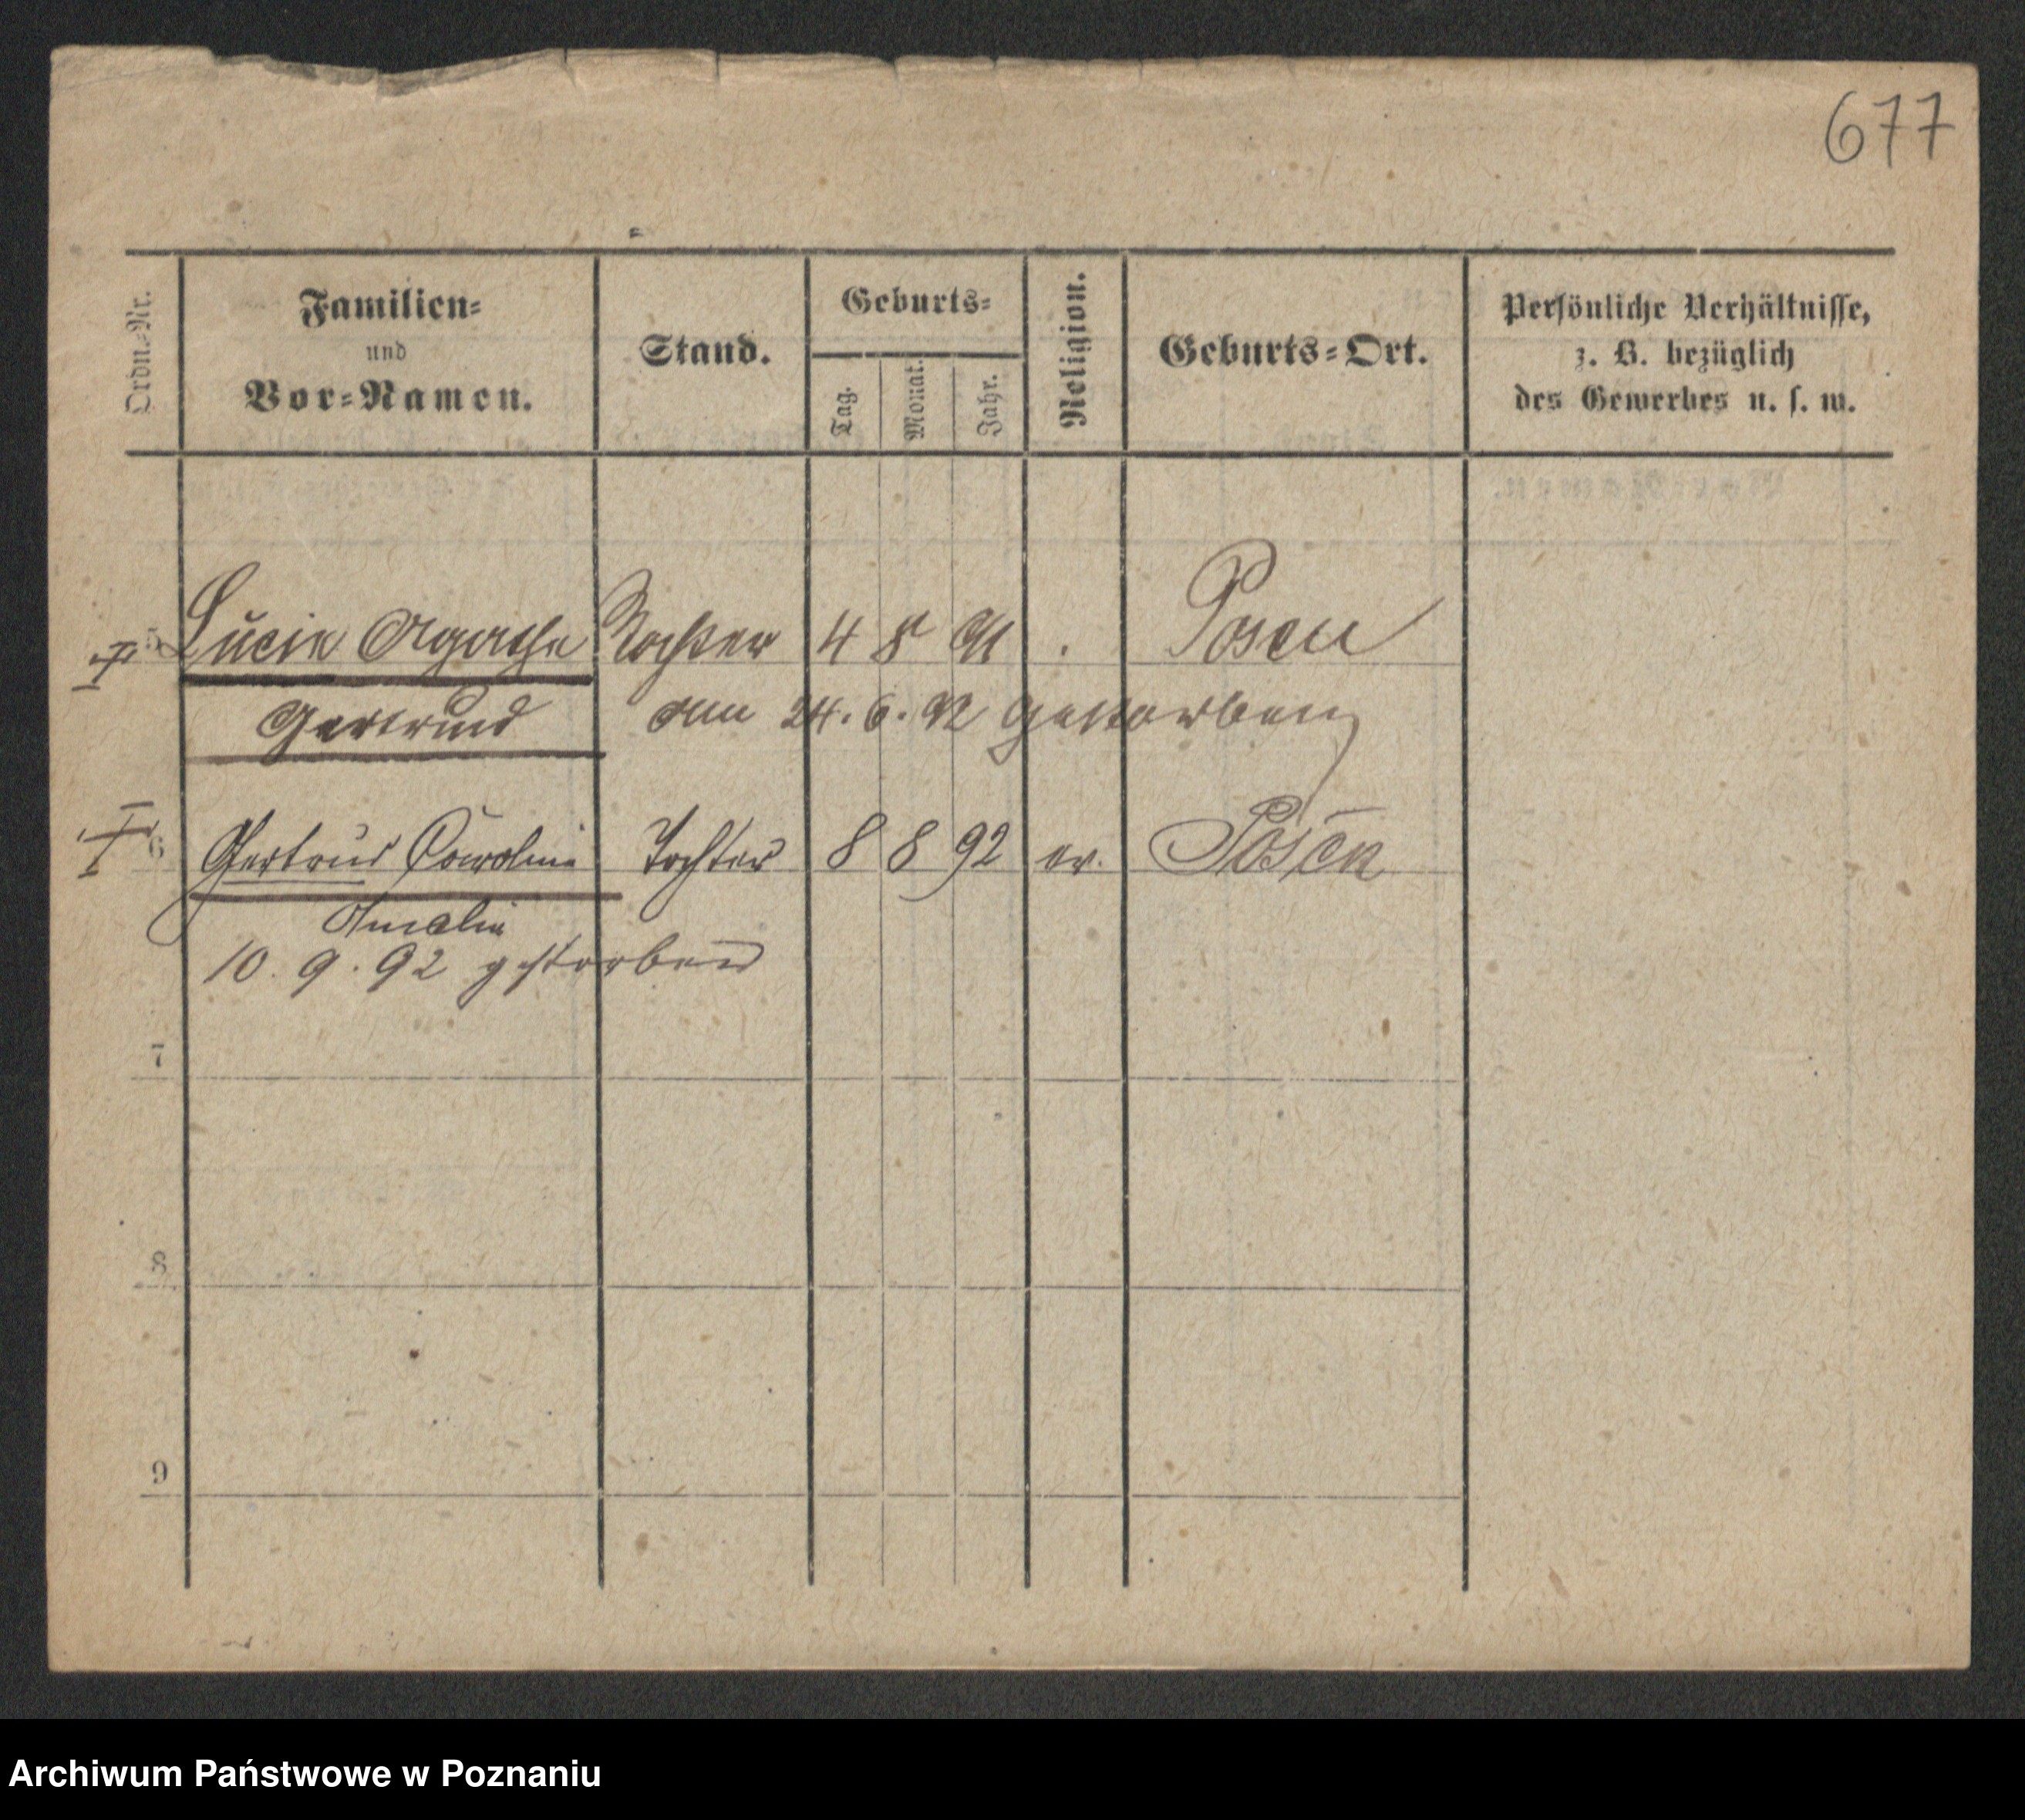 677
Ordn.-Nr.
Familien-
und
Vor-Namen.
Stand.
Geburts-
Tag.
Monat.
Jahr.
Religion.
Geburts-Ort.
Persönliche Verhältnisse,
z. B. bezüglich
des Gewerbes u. s. w.
5 Lucie Agathe Tochter 4 8 91 . Posen
Gertrud am 24. 6. 92 gestorben
6 Gertrud Caroline Tochter 8 8 92 ev. Posen
Amalie
10. 9. 92 gestorben
7
8
9
Archiwum Państwowe w Poznaniu